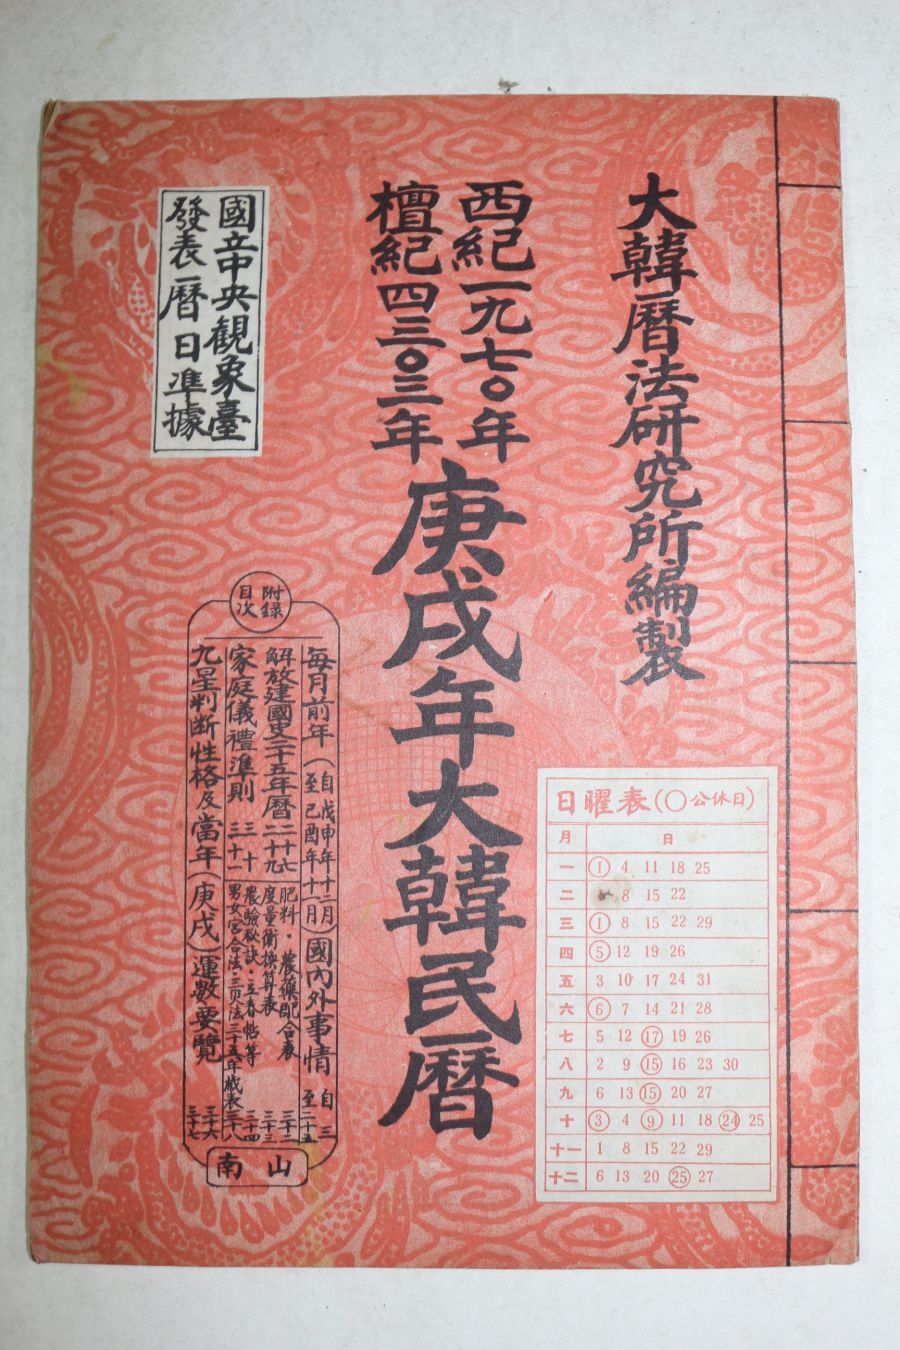 大韓曆法研究所編製
西紀一九七〇年
檀紀四三〇三年
庚戌年大韓民曆
國立中央觀象臺
發表曆日準據
附錄
目次
每月前年(自戊申年十二月 至己酉年十一月)國內外事情 自三 至二十五
解放建國史二十五年曆 二十六 二十九
肥料·農藥配合表 三十二
度量衡換算表 三十三
家庭儀禮準則 三十 三十一
農驗秘訣·立春帖等 三十四
男女宮合法·三災法三十五年歲表三十八
九星判断性格及當年(庚戌)運數要覽 三十六 三十七
南山
日曜表(〇公休日)
月 日
一 ① 4 11 18 25
二 8 15 22
三 ① 8 15 22 29
四 ⑤ 12 19 26
五 3 10 17 24 31
六 ⑥ 7 14 21 28
七 5 12 ⑰ 19 26
八 2 9 ⑮ 16 23 30
九 6 13 ⑮ 20 27
十 ③ 4 ⑨ 11 18 ㉔ 25
十一 1 8 15 22 29
十二 6 13 20 ㉕ 27